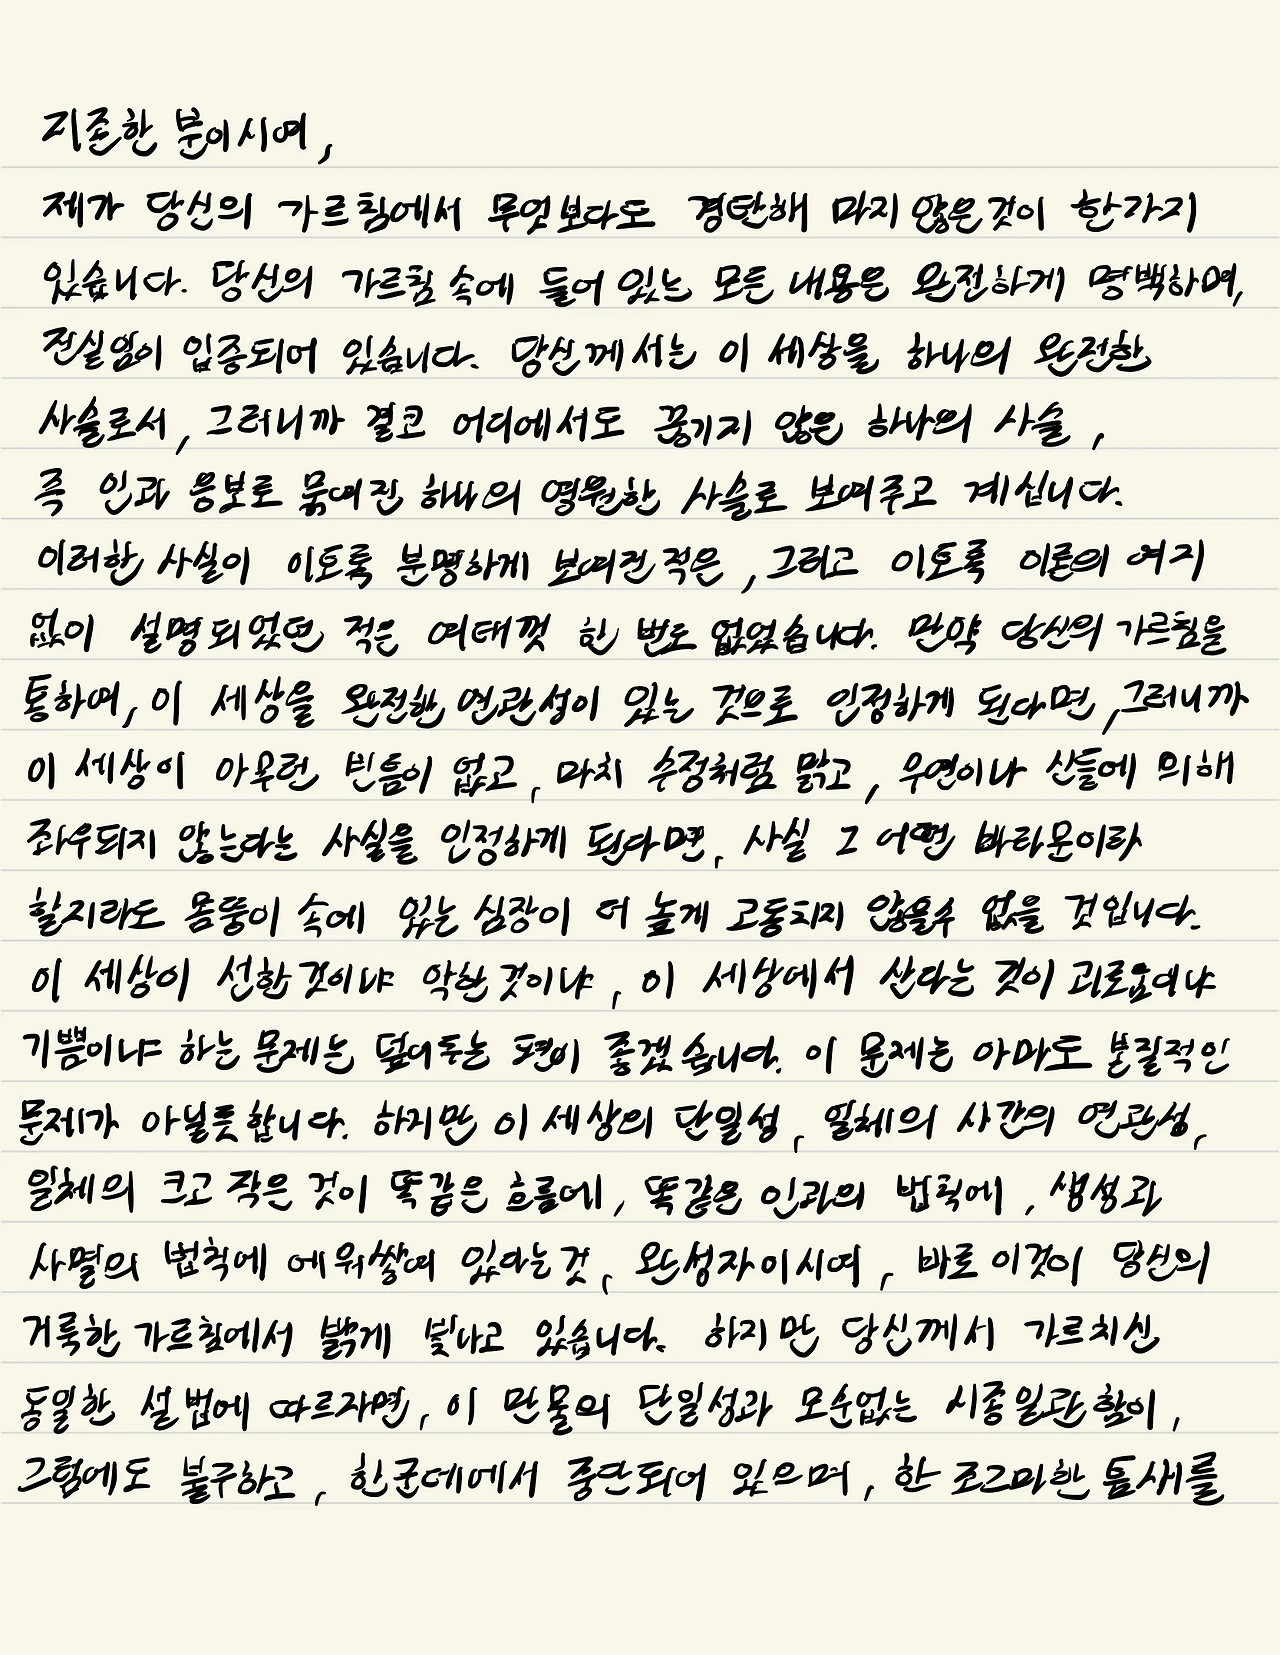 지존한 분이시여,
제가 당신의 가르침에서 무엇보다도 경탄해 마지 않은것이 한가지
있습니다. 당신의 가르침 속에 들어 있는 모든 내용은 완전하게 명백하며,
진실임이 입증되어 있습니다. 당신께서는 이 세상을 하나의 완전한
사슬로서, 그러니까 결코 어디에서도 끊기지 않은 하나의 사슬,
즉 인과 응보로 묶여진 하나의 영원한 사슬로 보여주고 계십니다.
이러한 사실이 이토록 분명하게 보여진 적은, 그리고 이토록 이론의 여지
없이 설명되었던 적은 여태껏 한 번도 없었습니다. 만약 당신의 가르침을
통하여, 이 세상을 완전한 연관성이 있는 것으로 인정하게 된다면, 그러니까
이 세상이 아무런 빈틈이 없고, 마치 수정처럼 맑고, 우연이나 신들에 의해
좌우되지 않는다는 사실을 인정하게 된다면, 사실 그 어떤 바라문이라
할지라도 몸뚱이 속에 있는 심장이 더 높게 고동치지 않을수 없을 것입니다.
이 세상이 선한것이냐 악한것이냐, 이 세상에서 산다는 것이 괴로움이냐
기쁨이냐 하는 문제는 덮어두는 편이 좋겠습니다. 이 문제는 아마도 본질적인
문제가 아닐듯합니다. 하지만 이 세상의 단일성, 일체의 사건의 연관성,
일체의 크고 작은 것이 똑같은 흐름에, 똑같은 인과의 법칙에, 생성과
사멸의 법칙에 에워쌓여 있다는것, 완성자이시여, 바로 이것이 당신의
거룩한 가르침에서 밝게 빛나고 있습니다. 하지만 당신께서 가르치신
동일한 설법에 따르자면, 이 만물의 단일성과 모순없는 시종일관함이,
그럼에도 불구하고, 한군데에서 중단되어 있으며, 한 조그마한 틈새를